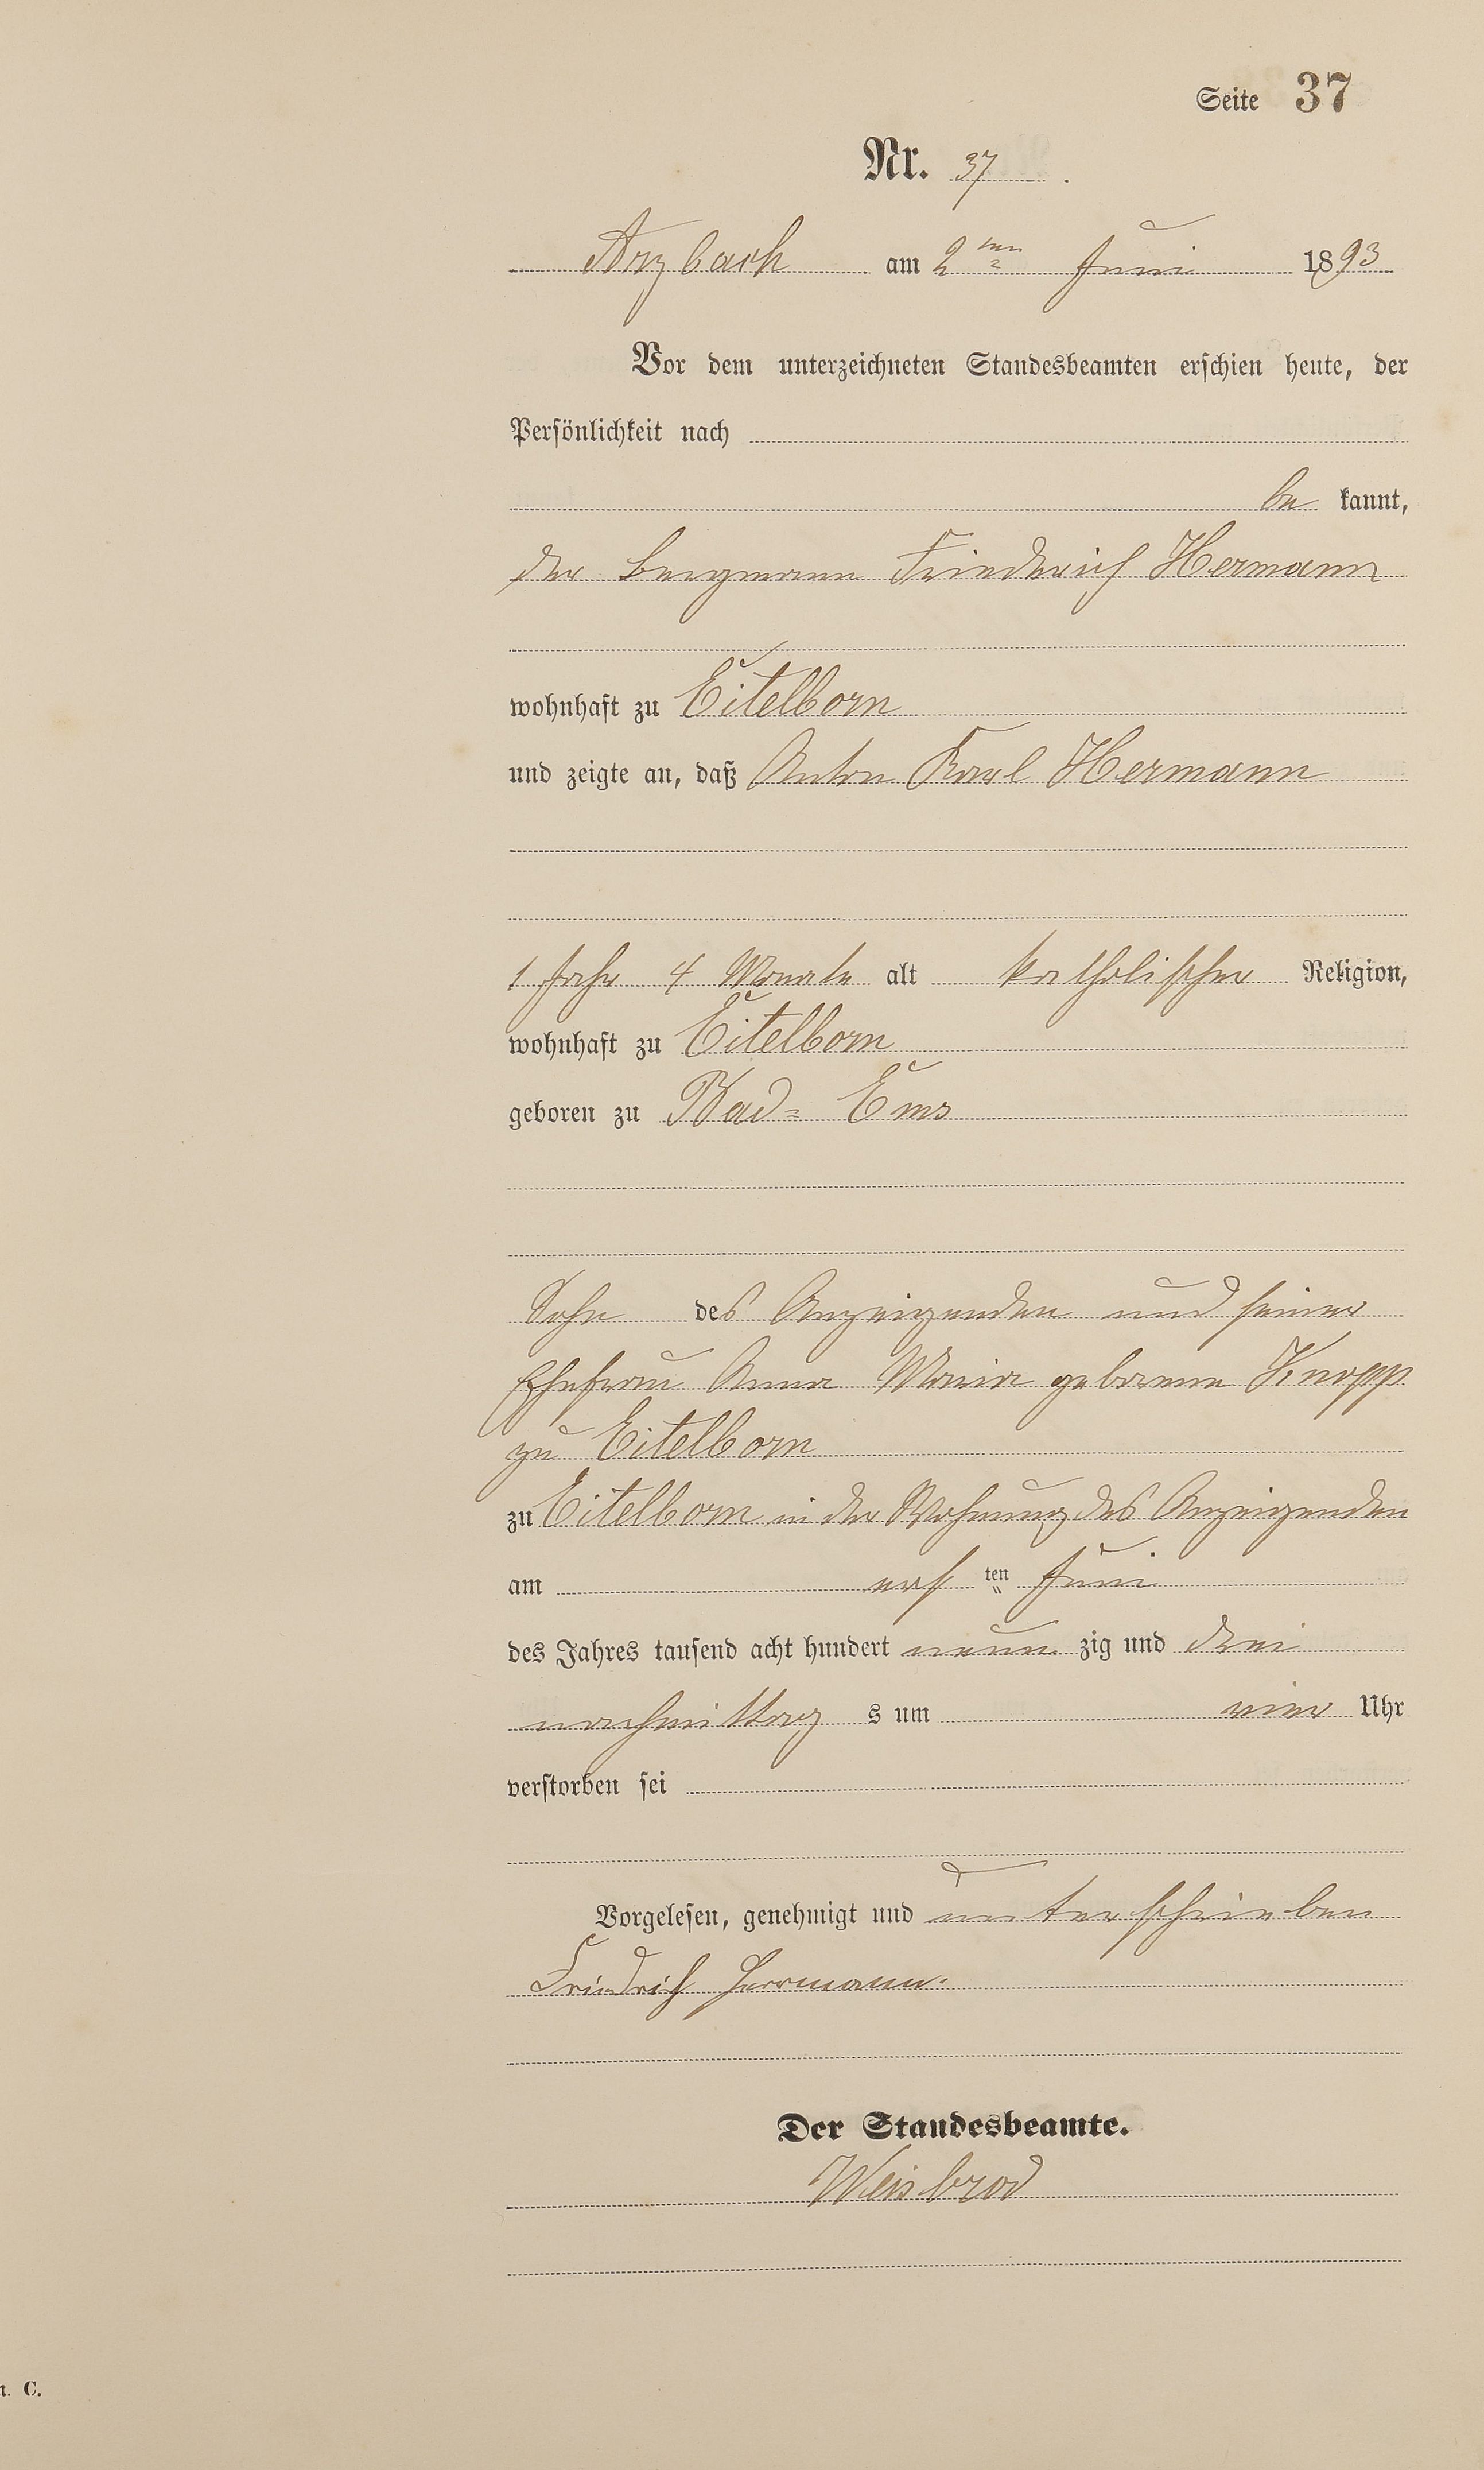 Seite 37
Nr. 37.
Arzbach am 2ten Juni 1893
Vor dem unterzeichneten Standesbeamten erschien heute, der
Persönlichkeit nach
be kannt,
der Bergmann Friederich Hermann
wohnhaft zu Eitelborn
und zeigte an, daß Anton Karl Hermann
1 Jahr 4 Monate alt katholischer Religion,
wohnhaft zu Eitelborn
geboren zu Bad= Ems
Sohn des Anzeigenden und seiner
Ehefrau Anna Maria geborene Knopp
zu Eitelborn
zu Eitelborn in der Wohnung des Anzeigenden
am ers ten Juni
des Jahres tausend acht hundert neun zig und drei
nachmittag s um vier Uhr
verstorben sei
Vorgelesen, genehmigt und unterschrieben
Friedrich Herrmann.
Der Standesbeamte.
Weisbrod
C.